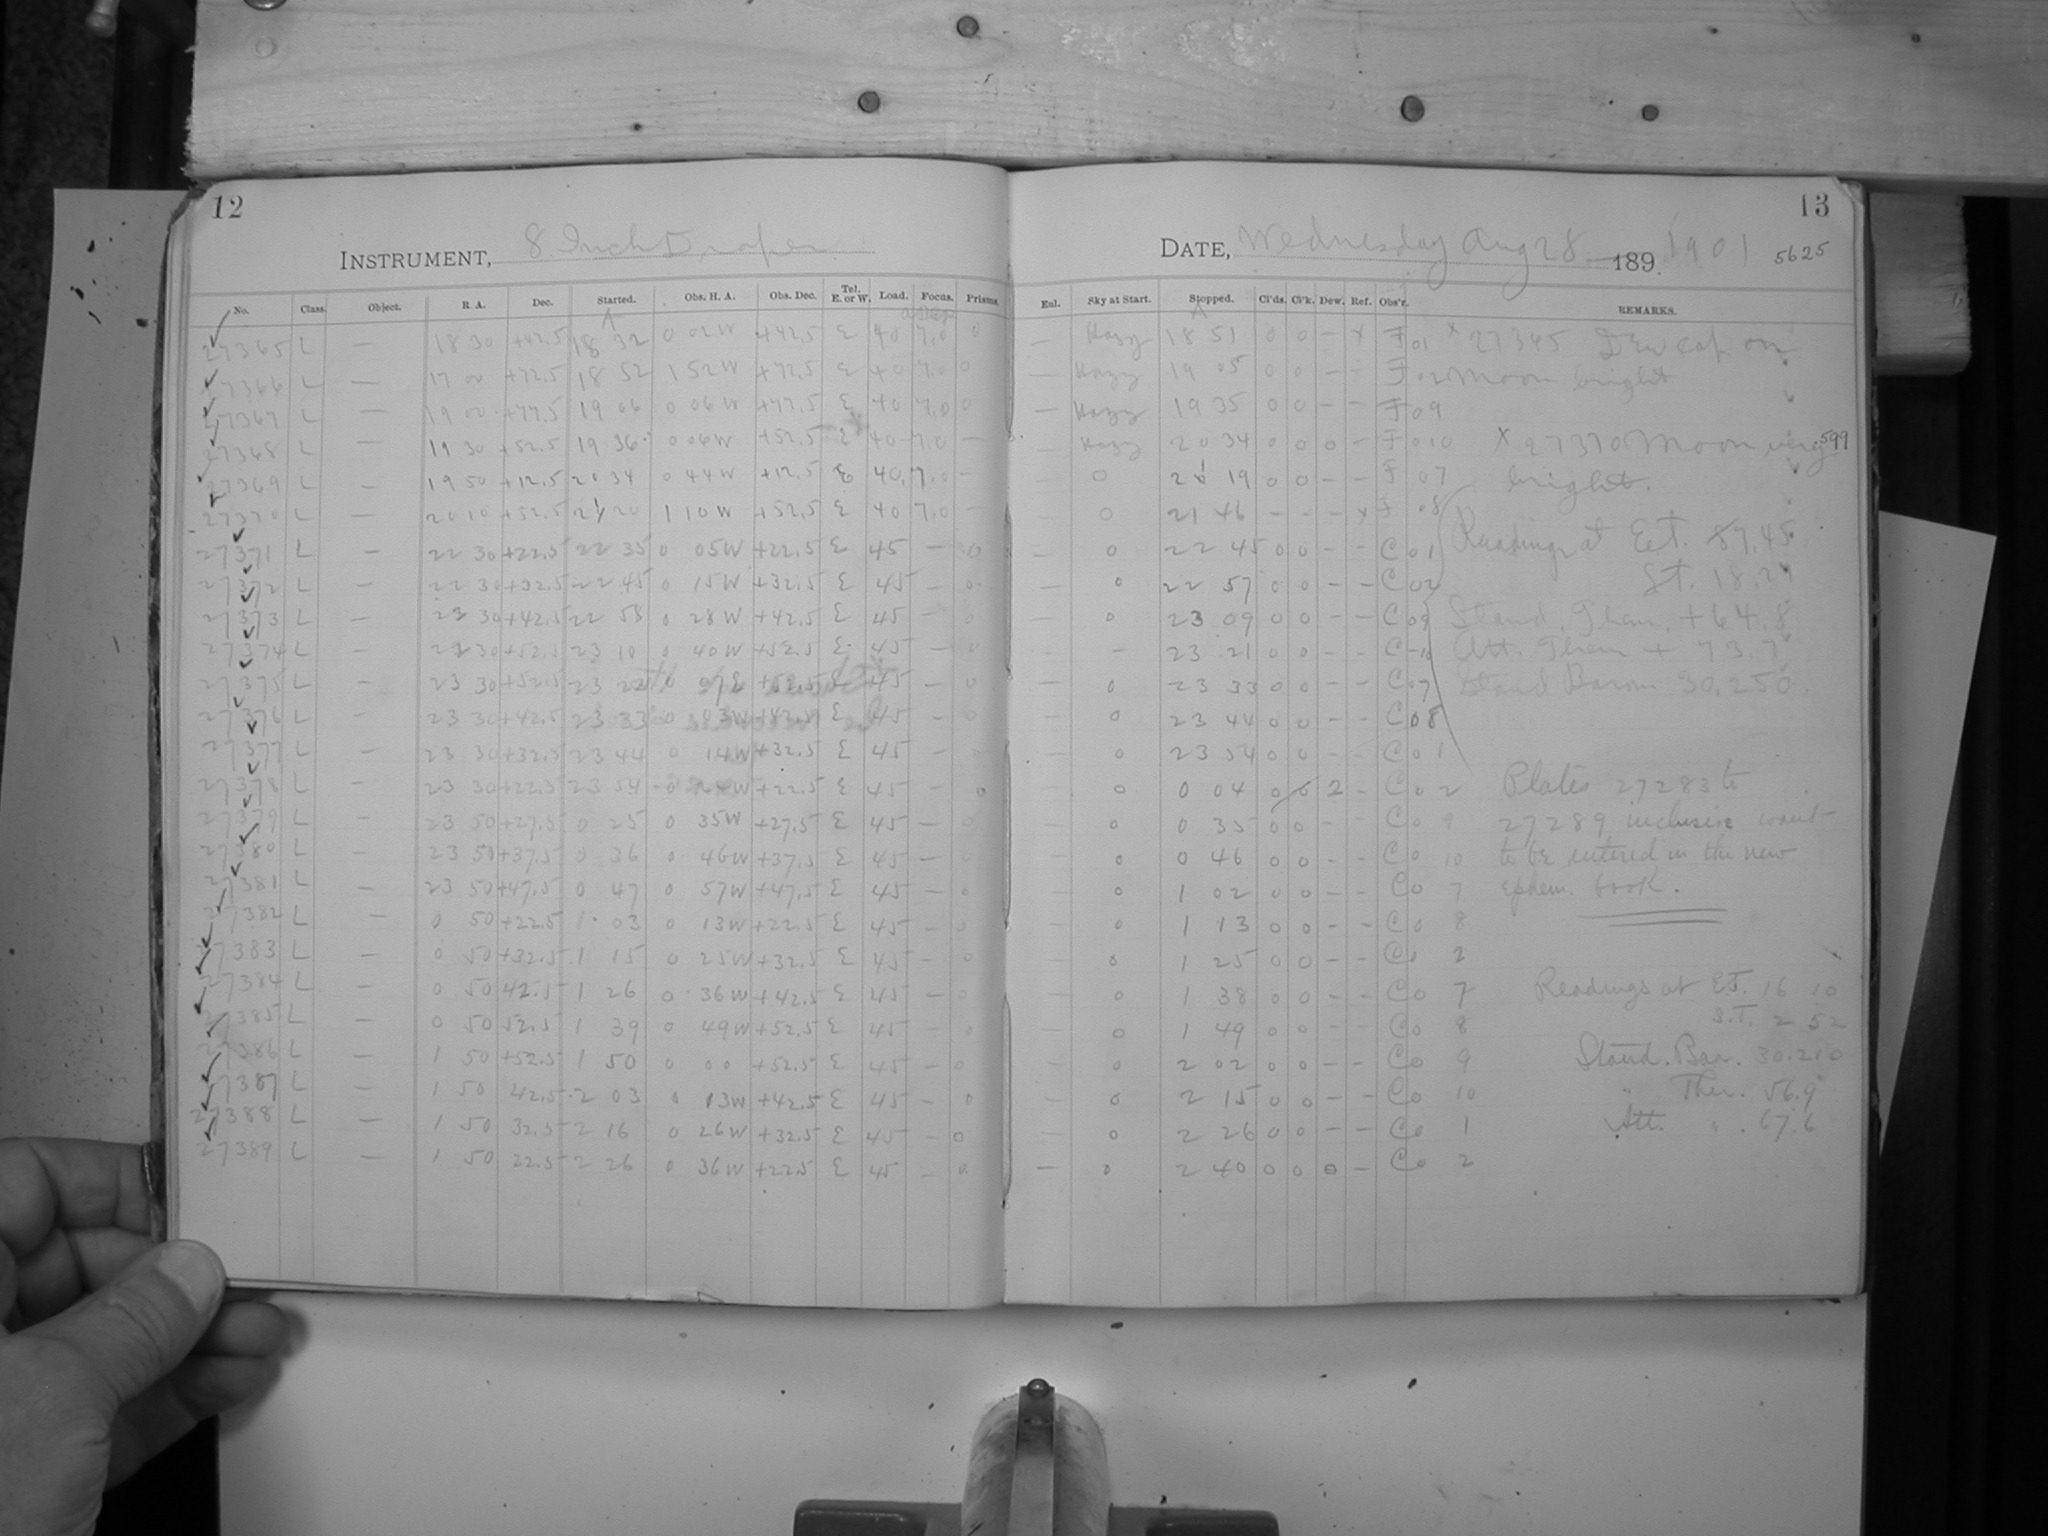 12
INSTRUMENT, 8 Inch Draper
No. Class. Object. R. A. Dec. Started. Obs. H. A. Obs. Dec. Tel. E. or W. Load. Focus. Prisms.
27365 L — 18 30 +42.5 18 32 0 02W +42.5 E 40 7.0 0
27366 L — 17 00 +72.5 18 52 1 52W +72.5 E 40 7.0 0
27367 L — 19 00 +77.5 19 06 0 06W +77.5 E 40 7.0 0
27368 L — 19 30 +52.5 19 36 0 06W +52.5 E 40 7.0 —
27369 L — 19 50 +12.5 20 34 0 44W +12.5 E 40 7.0 —
27370 L — 20 10 +52.5 21 20 1 10W +52.5 E 40 7.0 —
27371 L — 22 30 +22.5 22 35 0 05W +22.5 E 45 — 0
27372 L — 22 30 +32.5 22 45 0 15W +32.5 E 45 — 0
27373 L — 22 30 +42.5 22 58 0 28W +42.5 E 45 — 0
27374 L — 22 30 +52.5 23 10 0 40W +52.5 E 45 — 0
27375 L — 23 30 +52.5 23 22 0 +52.5 E 45 — 0
27376 L — 23 30 +42.5 23 33 0 03W +42.5 E 45 — 0
27377 L — 23 30 +32.5 23 44 0 14W +32.5 E 45 — 0
27378 L — 23 30 +22.5 23 54 0 24W +22.5 E 45 — 0
27379 L — 23 50 +27.5 0 25 0 35W +27.5 E 45 — 0
27380 L — 23 50 +37.5 0 36 0 46W +37.5 E 45 — 0
27381 L — 23 50 +47.5 0 47 0 57W +47.5 E 45 — 0
27382 L — 0 50 +22.5 1 03 0 13W +22.5 E 45 — 0
27383 L — 0 50 +32.5 1 15 0 25W +32.5 E 45 — 0
27384 L — 0 50 42.5 1 26 0 36W +42.5 E 45 — 0
27385 L — 0 50 52.5 1 39 0 49W +52.5 E 45 — 0
27386 L — 1 50 +52.5 1 50 0 00 +52.5 E 45 — 0
27387 L — 1 50 42.5 2 03 0 13W +42.5 E 45 — 0
27388 L — 1 50 32.5 2 16 0 26W +32.5 E 45 — 0
27389 L — 1 50 22.5 2 26 0 36W +22.5 E 45 — 0
13
DATE, Wednesday Aug 28 189 1901 5625
Enl. Sky at Start. Stopped. Cl'ds. Cl'k. Dew. Ref. Obs'r. REMARKS.
— Hazy 18 51 0 0 — x F 01 x 27345 Dew cap on
— Hazy 19 05 0 0 — — F 02 Moon bright
— Hazy 19 35 0 0 — — F 09
— Hazy 20 34 0 0 0 — F 010 x 27370 Moon very 599
— 0 21 19 0 0 — — F 07 bright.
— 0 21 46 — — — x F 08
— 0 22 45 0 0 — — C 01 Readings at E.t. 87.45
— 0 22 57 0 0 — — C 02 St. 18.21
— 0 23 09 0 0 — — C 09 Stand. Ther. +64.8
— — 23 21 0 0 — — C 10 Att. Therm + 73.7
— 0 23 33 0 0 — — C 07 Stand Barom 30.250
— 0 23 44 0 0 — — C 08
— 0 23 54 0 0 — — C 0 1
— 0 0 04 0 0 2 — C 0 2 Plates 27283 to
— 0 0 35 0 0 — — C 0 9 27289 inclusive want
— 0 0 46 0 0 — — C 0 10 to be entered in the new
— 0 1 02 0 0 — — C 0 7 ephem. book.
— 0 1 13 0 0 — — C 0 8
— 0 1 25 0 0 — — C 0 2
— 0 1 38 0 0 — — C 0 7 Readings at E.T. 16 10
— 0 1 49 0 0 — — C 0 8 S.T. 2 52
— 0 2 02 0 0 — — C 0 9 Stand. Bar. 30.210
— 0 2 15 0 0 — — C 0 10 " Ther. 56.9
— 0 2 26 0 0 — — C 0 1 Att. " 67.6
— 0 2 40 0 0 0 — C 0 2